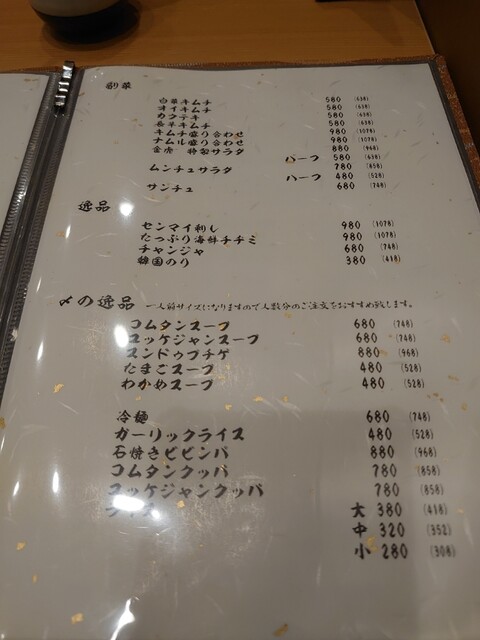 副菜
白菜キムチ 580 (638)
オイキムチ 580 (638)
カクテキ 580 (638)
長芋キムチ 580 (638)
キムチ盛り合わせ 980 (1078)
ナムル盛り合わせ 980 (1078)
金虎 特製サラダ 880 (968)
ハーフ 580 (638)
ムンチュサラダ 780 (858)
ハーフ 480 (528)
サンチュ 680 (748)
逸品
センマイ刺し 980 (1078)
たっぷり海鮮チヂミ 980 (1078)
チャンジャ 680 (748)
韓国のり 380 (418)
〆の逸品 一人前サイズになりますので人数分のご注文をおすすめ致します。
コムタンスープ 680 (748)
ユッケジャンスープ 680 (748)
スンドゥブチゲ 880 (968)
たまごスープ 480 (528)
わかめスープ 480 (528)
冷麺 680 (748)
ガーリックライス 480 (528)
石焼きビビンバ 880 (968)
コムタンクッパ 780 (858)
ユッケジャンクッパ 780 (858)
ライス 大 380 (418)
中 320 (352)
小 280 (308)